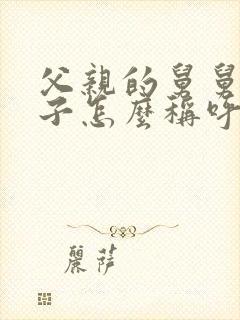 父親的舅舅
子怎麼稱呼
麗萨